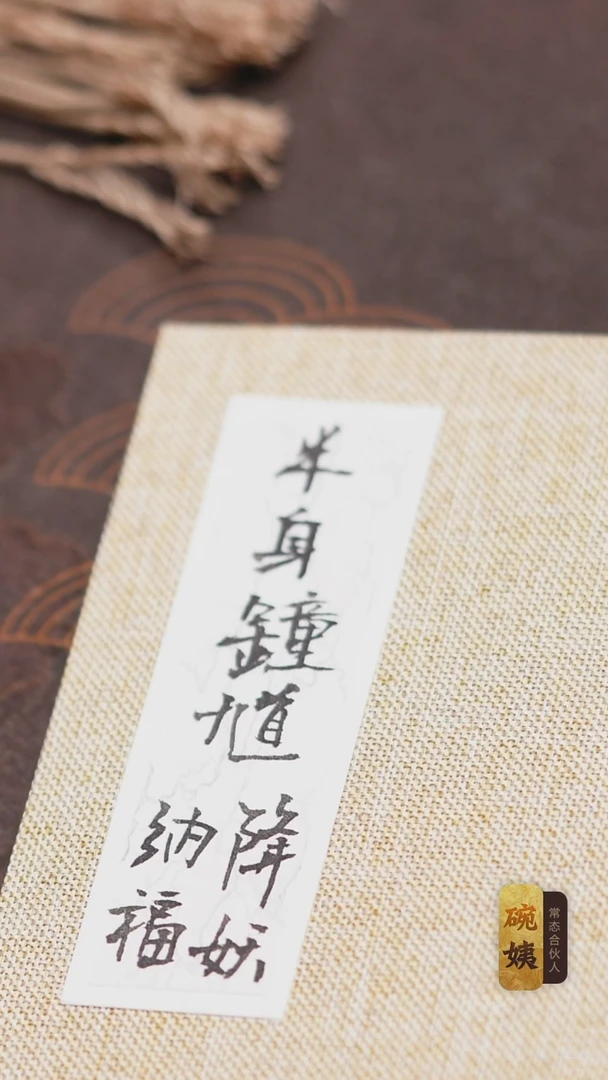 半身鐘馗
降妖
纳福
碗姨
常态合伙人